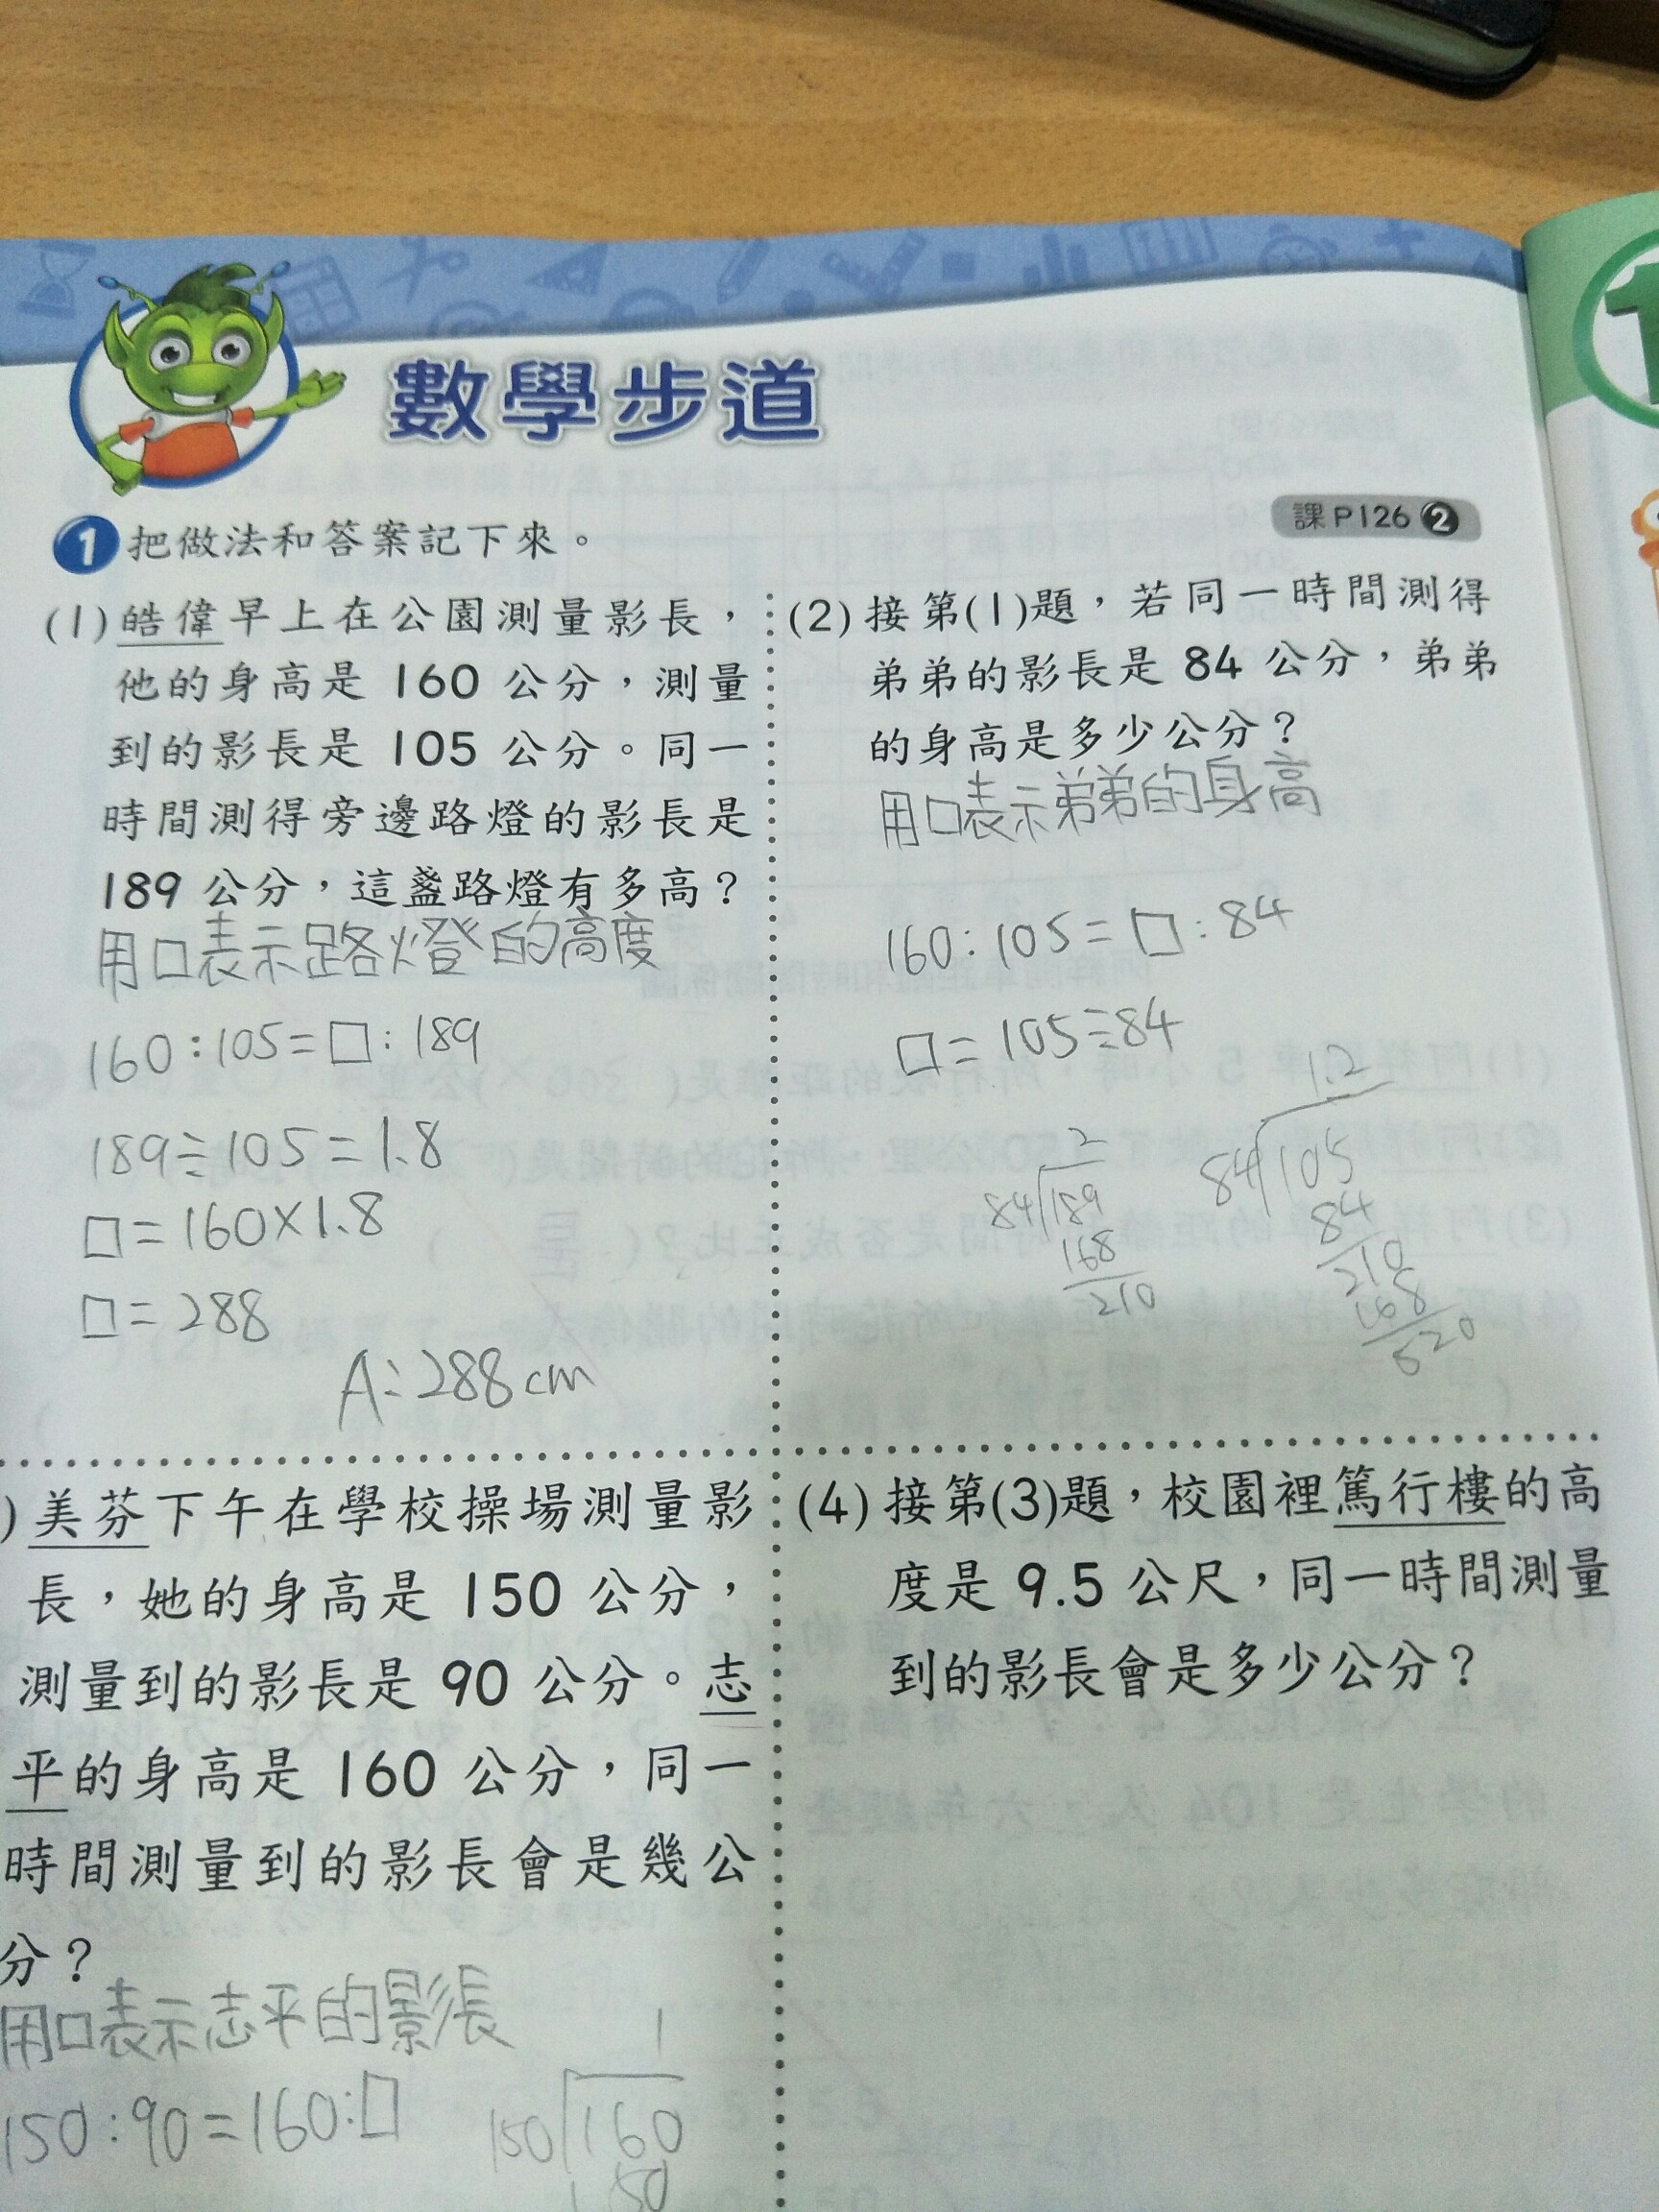 數學步道
1 把做法和答案記下來。
課P126 2
(1) 皓偉早上在公園測量影長，
他的身高是 160 公分，測量
到的影長是 105 公分。同一
時間測得旁邊路燈的影長是
189 公分，這盞路燈有多高？
用口表示路燈的高度
160:105=□:189
189÷105=1.8
□=160×1.8
□=288
A:288cm
(2) 接第(1)題，若同一時間測得
弟弟的影長是 84 公分，弟弟
的身高是多少公分？
用口表示弟弟的身高
160:105=□:84
□=105÷84
2
84 189
168
210
1.2
84 105
84
210
168
520
) 美芬下午在學校操場測量影
長，她的身高是 150 公分，
測量到的影長是 90 公分。志
平的身高是 160 公分，同一
時間測量到的影長會是幾公
分？
用口表示志平的影長
150:90=160:□
1
150 160
150
(4) 接第(3)題，校園裡篤行樓的高
度是 9.5 公尺，同一時間測量
到的影長會是多少公分？